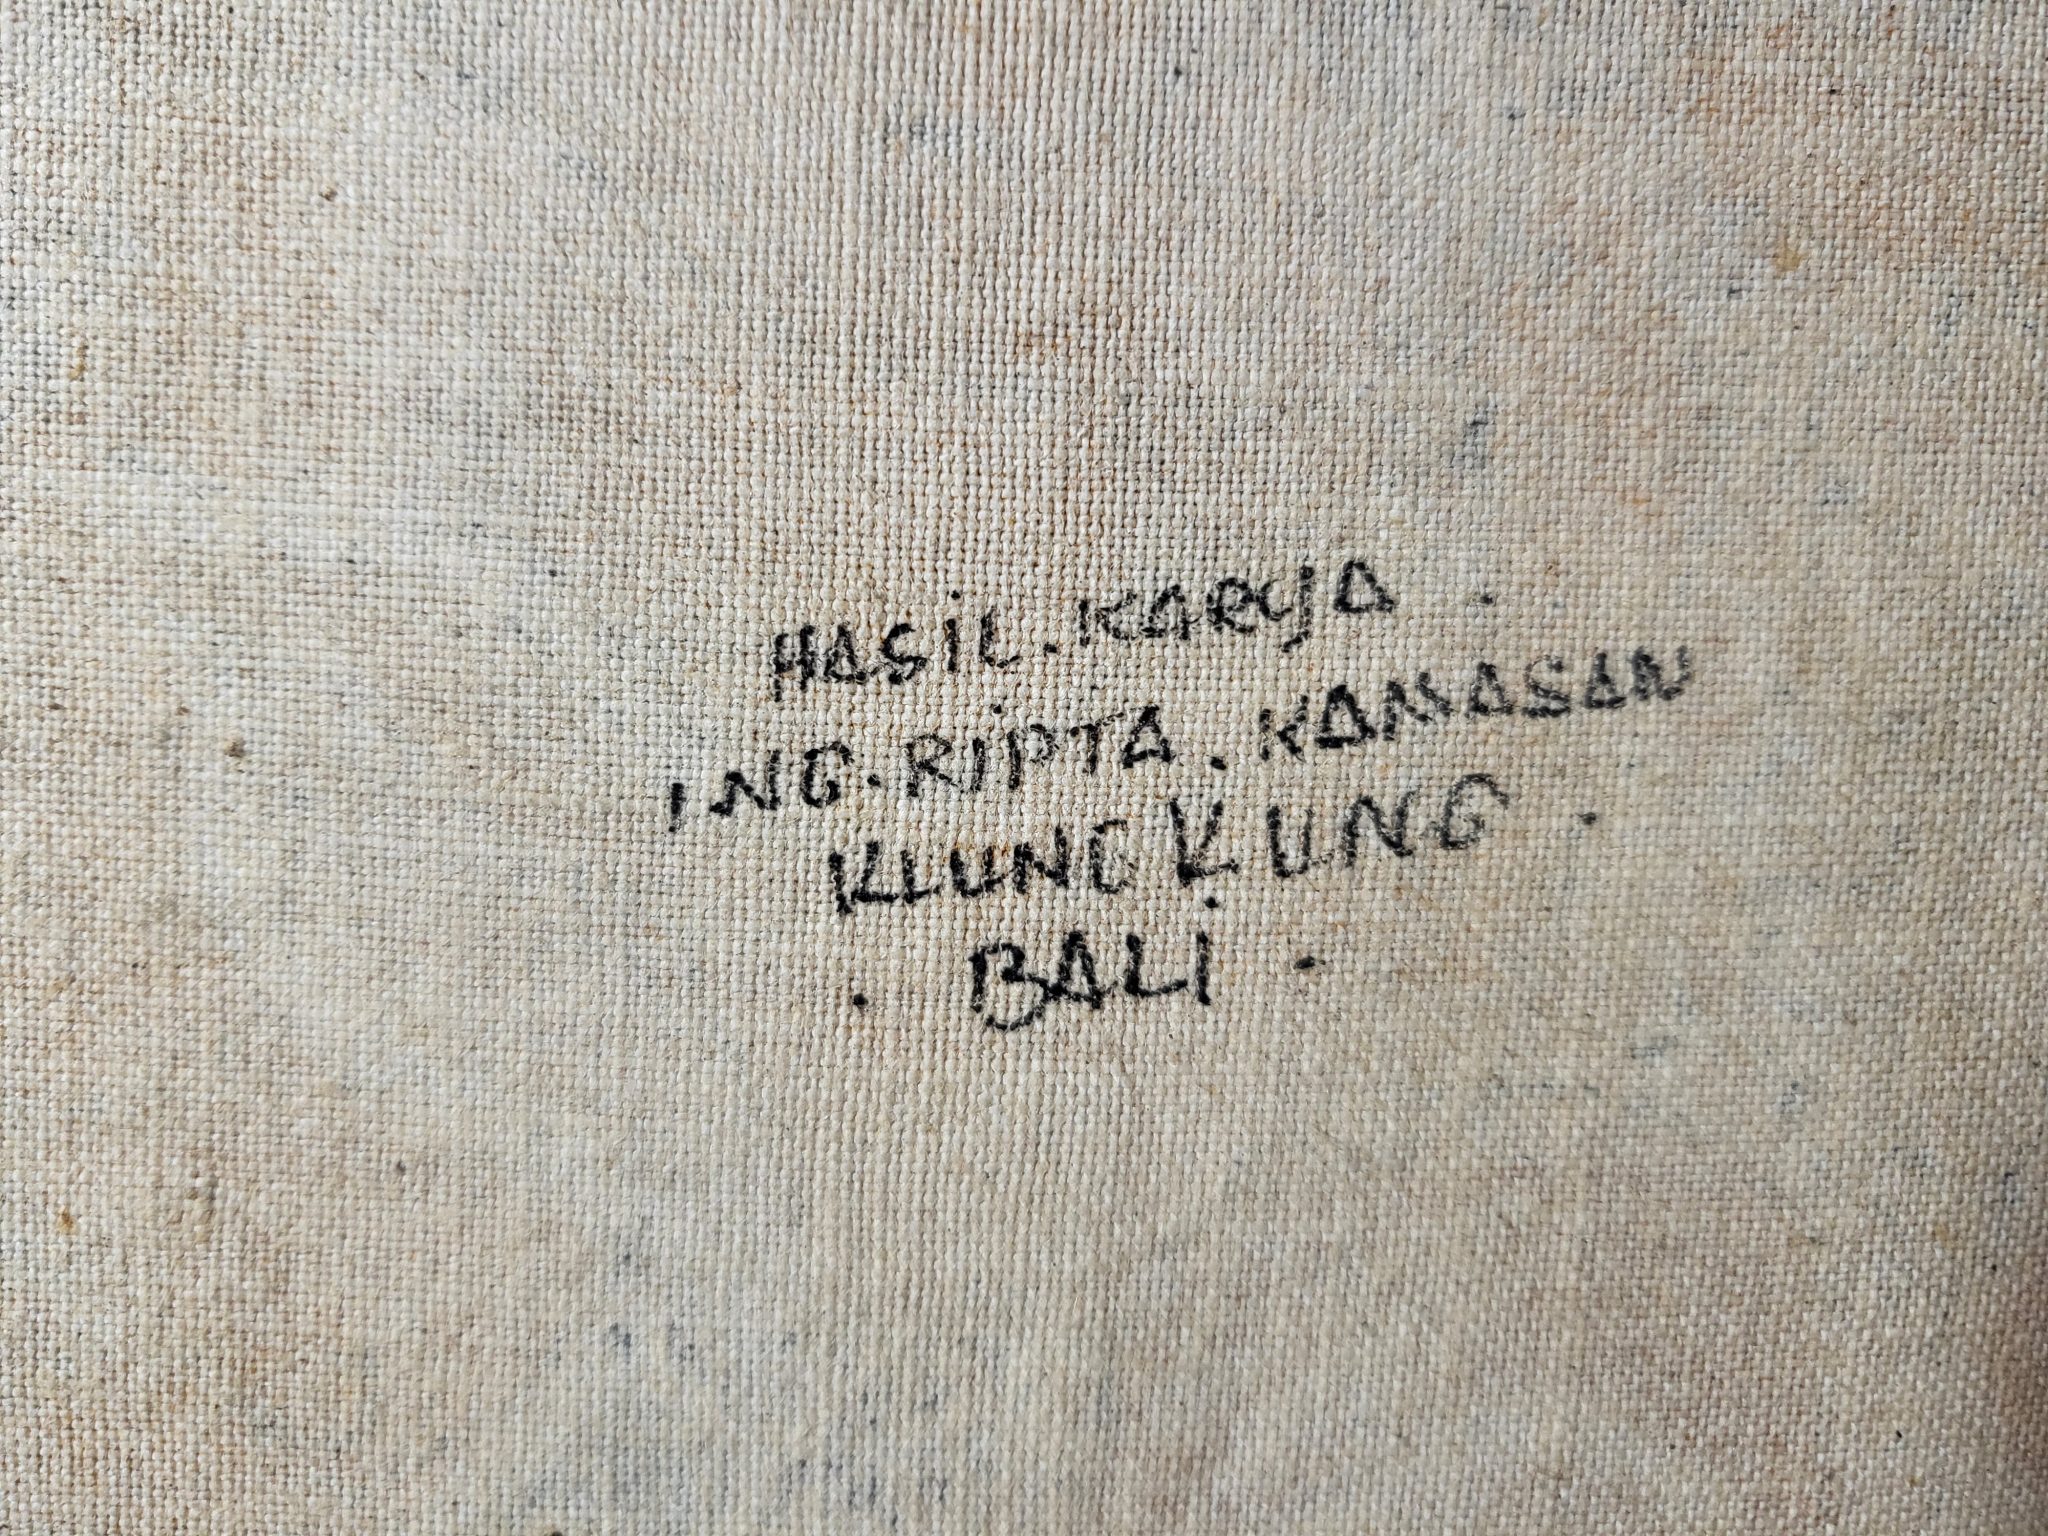 HASIL. KARYA.
ING. RIPTA. KAMASAN
KLUNGKUNG.
. BALI .